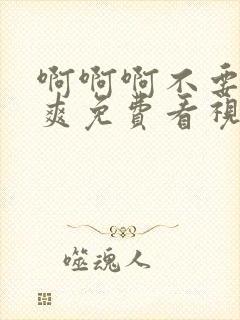 啊啊啊不要
爽免费看視
噬魂人